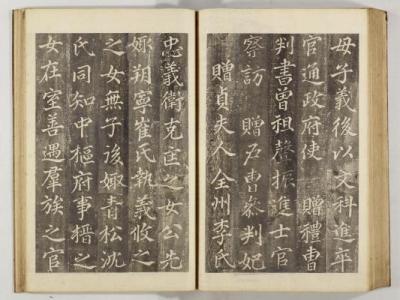 母子義後以文科進卒
官通政府使 贈禮曹
判書曾祖聲振進士官
察訪 贈戶曹參判妣
贈貞夫人全州李氏
忠義衛克匡之女公先
娵朔寧崔氏執義攸之
之女無子後娵青松沈
氏同知中樞府事榗之
女在室善遇羣族之官